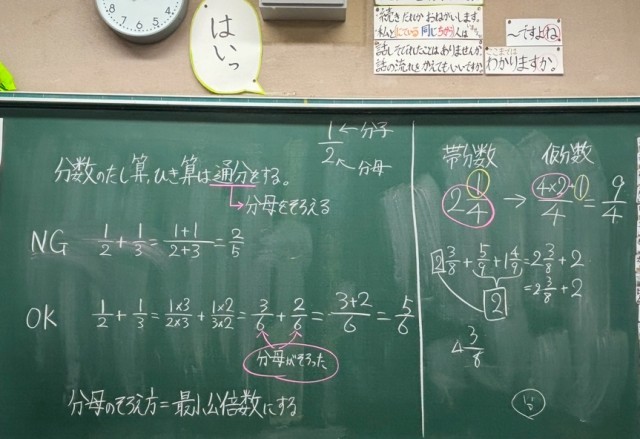 はいっ
続きだれかおねがいします。
私と にている 同じ ちがう 人は
話してくれたことはありませんか
話の流れをかえてもいいですか。
〜ですよね。
ここまでは
わかりますか。
1/2 ←分子
←分母
分数のたし算、ひき算は通分をする。
→分母をそろえる
NG 1/2 + 1/3 = 1+1/2+3 = 2/5
OK 1/2 + 1/3 = 1×3/2×3 + 1×2/3×2 = 3/6 + 2/6 = 3+2/6 = 5/6
分母がそろった
分母のそろえ方=最小公倍数にする
帯分数 仮分数
2 1/4 → 4×2+1/4 = 9/4
2 3/8 + 5/9 + 1 4/9 = 2 3/8 + 2
2
= 2 3/8 + 2
4 3/8